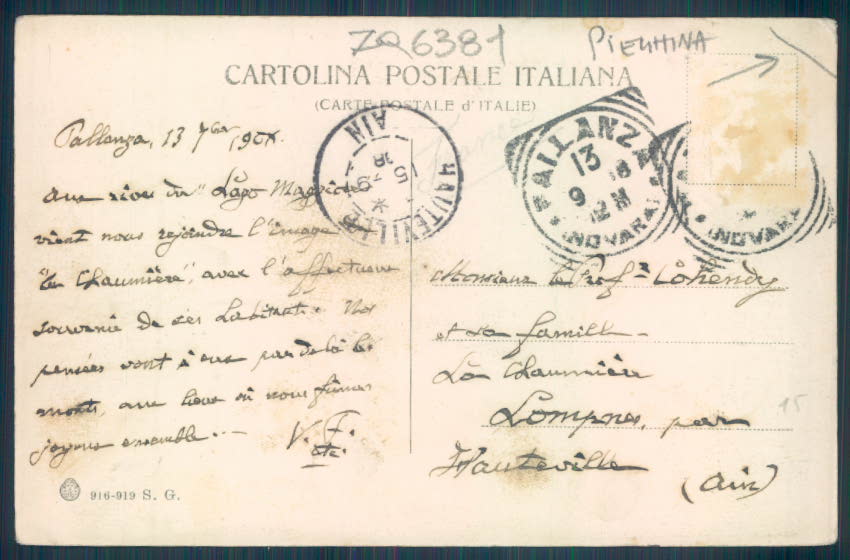 ZQ6381
PIECHINA
CARTOLINA POSTALE ITALIANA
(CARTE POSTALE d'ITALIE)
PALLANZA
13
9
12M
(NOVARA)
(NOVARA)
HAUTEVILLE
15
9
18
AIN
Pallanza, 13 7bre
Aux rives du "Lago Maggiore"
vient nous rejoindre l'image
"La Chaumière", avec l'affectueux
souvenir de ses habitants. Nos
pensées vont à eux par delà les
monts, aux lieux où nous fûmes
joyeux ensemble...
V. F.
Monsieur le Prof.r
et sa famille
La Chaumière
Lompnes, par
Hauteville
(Ain)
15
916-919 S. G.